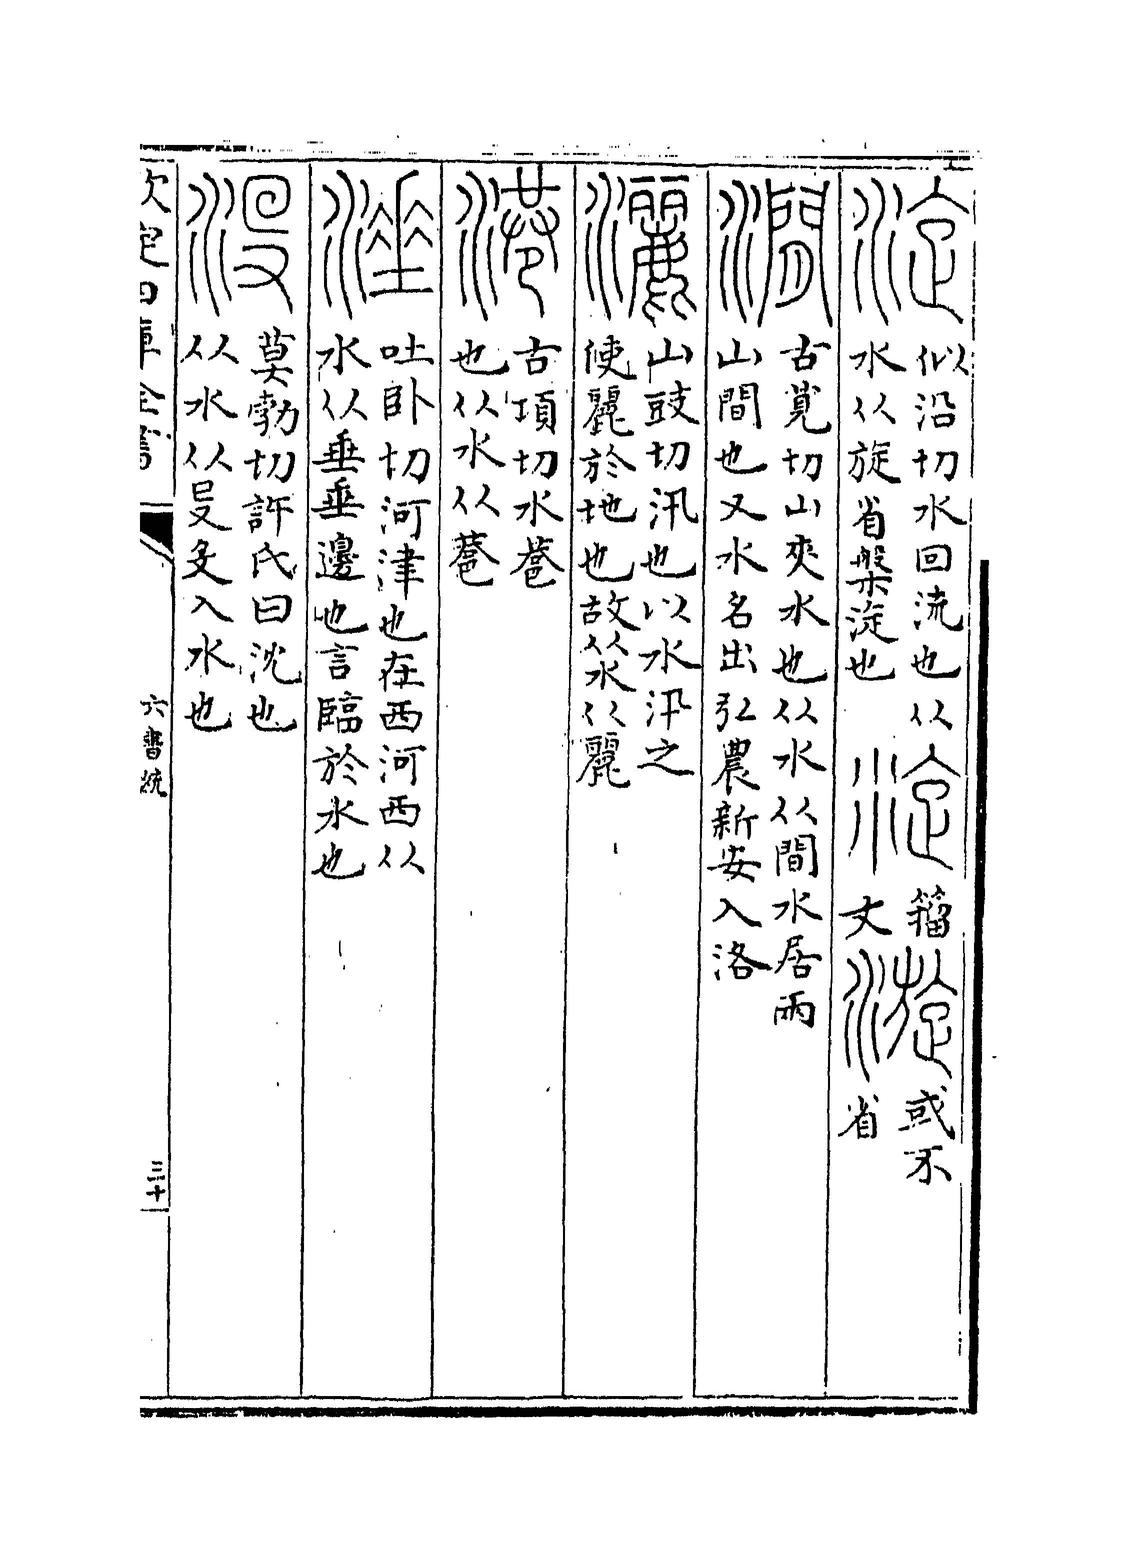 淀
似沿切水回流也从
水从旋省槃淀也
淀
籀
文
漩
或不
省
澗
古莧切山夾水也从水从間水居兩
山間也又水名出弘農新安入洛
灑
山豉切汛也以水汛之
使麗於地也故从水从麗
港
古項切水䔽
也从水从䔽
涶
吐卧切河津也在西河西从
水从垂垂邊也言臨於水也
沒
莫勃切許氏曰沈也
从水从𠬛𠬛入水也
欽定四庫全書
六書統
三十